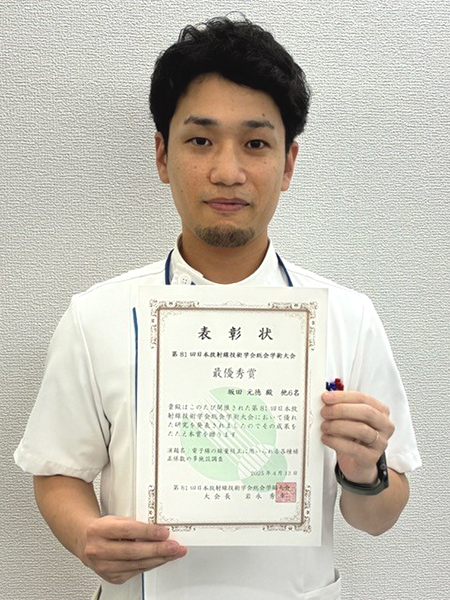 表彰状
第81回日本放射線技術学会総会学術大会
最優秀賞
坂田 元徳 殿 他6名
貴殿はこのたび開催された第81回日本放
射線技術学会総会学術大会において優れ
た研究を発表されましたのでその成果を
たたえ本賞を贈ります
演題名 電子線の線量校正に用いられる各種補
正係数の多施設調査
2025年4月13日
第81回日本放射線技術学会総会学術大会
大会長 岩永 秀